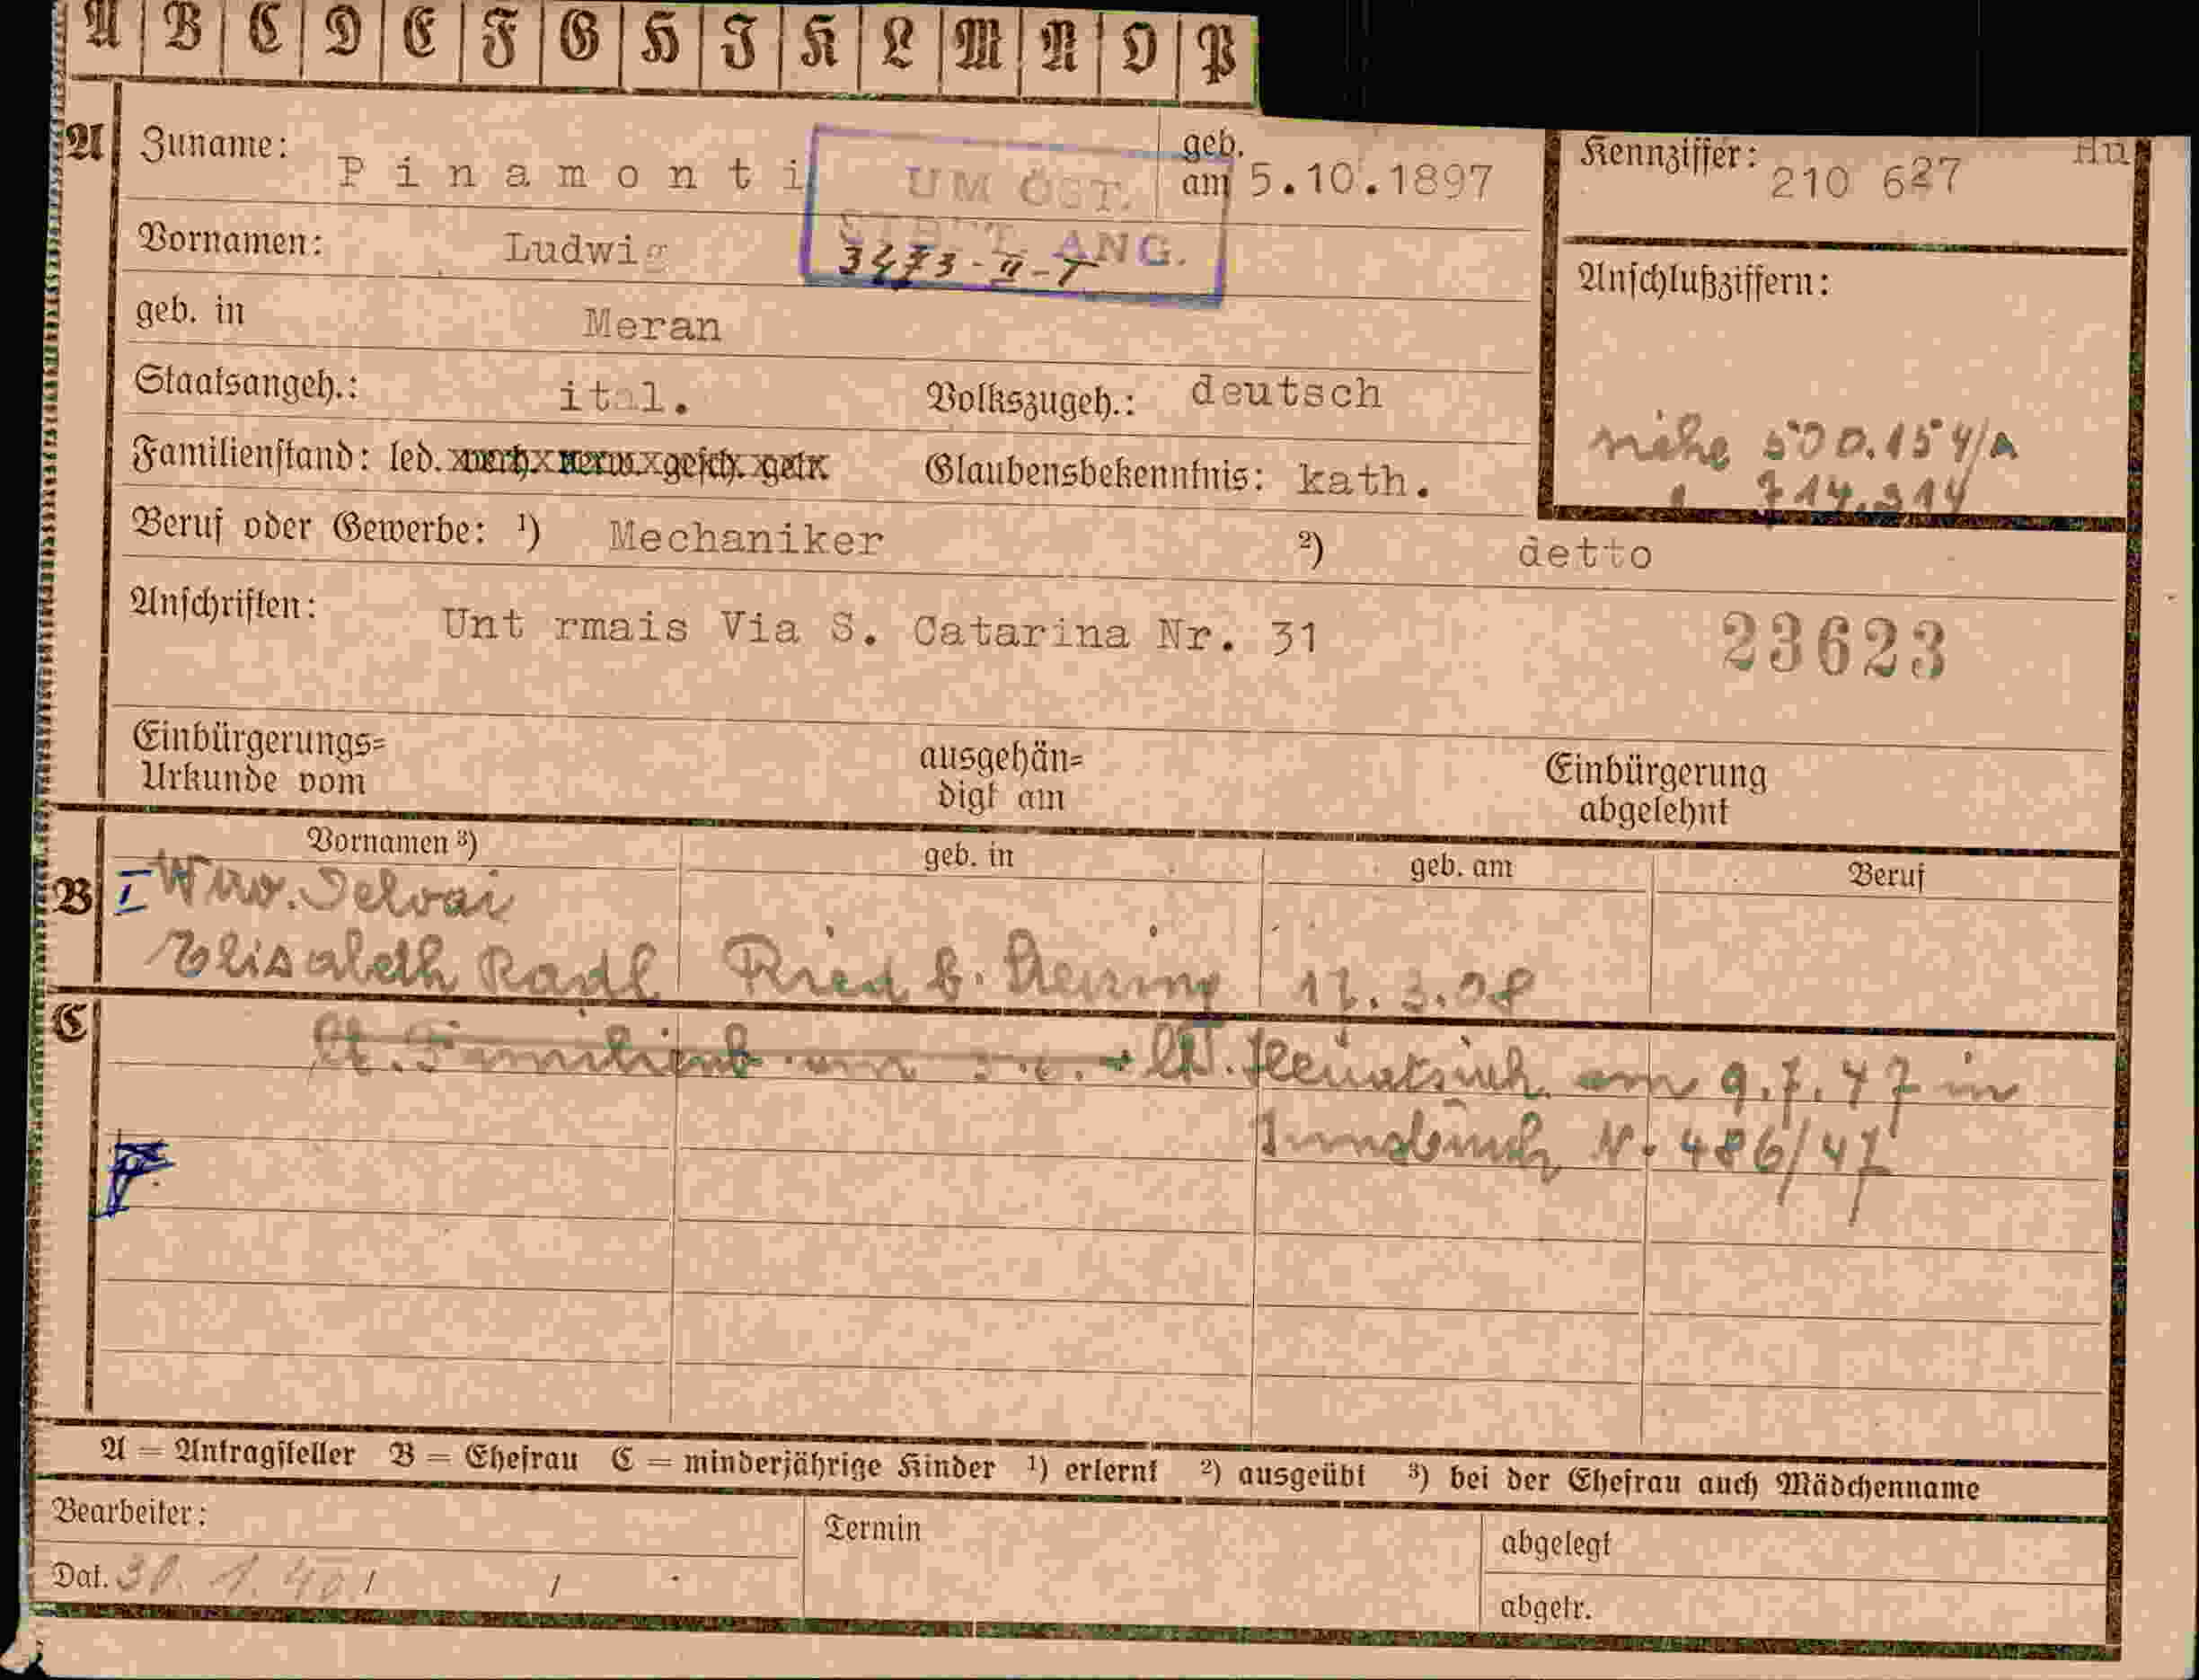 A B C D E F G H I K L M N O P
A Zuname: Pinamonti geb. am 5.10.1897 Kennziffer: 210 627 Hu
UM ÖST.
STBGT. ANG.
3473-II-T
Vornamen: Ludwig
Anschlußziffern:
geb. in Meran
Staatsangeh.: ital. Volkszugeh.: deutsch
siehe 500.154/A
714.314
Familienstand: led. verh. verw. gesch. getr. Glaubensbekenntnis: kath.
Beruf oder Gewerbe: 1) Mechaniker 2) detto
Anschriften: Unt rmais Via S. Catarina Nr. 31 23623
Einbürgerungs=
Urkunde vom
ausgehän=
digt am
Einbürgerung
abgelehnt
Vornamen 3) geb. in geb. am Beruf
B I Wwo.
Elisabeth Radl Ried b. Sterzing 17.3.08
C lt. Familienb. am 9.7.47 in
Innsbruck N. 486/47
A = Antragsteller B = Ehefrau C = minderjährige Kinder 1) erlernt 2) ausgeübt 3) bei der Ehefrau auch Mädchenname
Bearbeiter: Termin abgelegt
Dat. 30. 1. 40 / / abgetr.